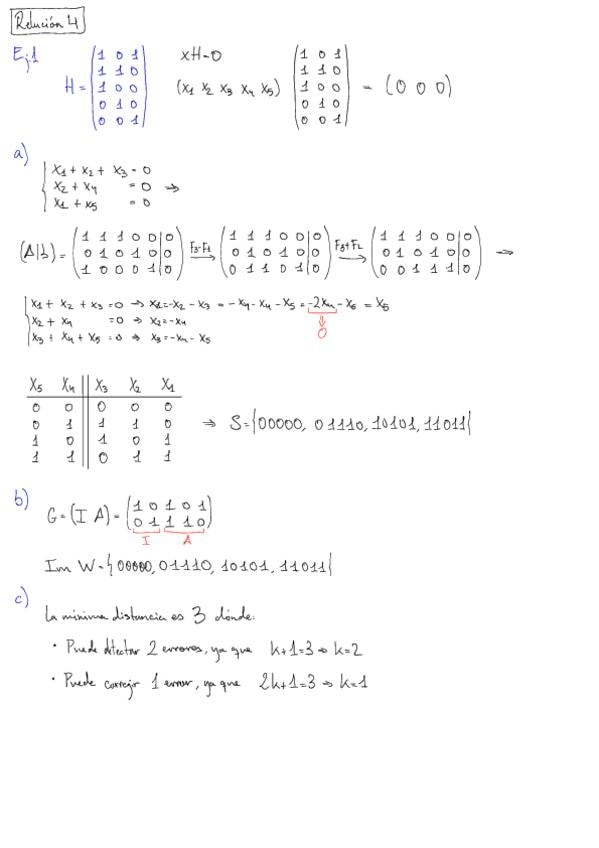 Relación 4
Ej.1
H = (1 0 1
1 1 0
1 0 0
0 1 0
0 0 1)
xH=0
(x1 x2 x3 x4 x5) (1 0 1
1 1 0
1 0 0
0 1 0
0 0 1) = (0 0 0)
a)
{ x1 + x2 + x3 = 0
x2 + x4 = 0 ⇒
x1 + x5 = 0
(A|b) = (1 1 1 0 0|0
0 1 0 1 0|0
1 0 0 0 1|0) F3-F1→ (1 1 1 0 0|0
0 1 0 1 0|0
0 1 1 0 1|0) F3+F2→ (1 1 1 0 0|0
0 1 0 1 0|0
0 0 1 1 1|0) →
{ x1 + x2 + x3 = 0 → x1 = -x2 - x3 = -x4 - x4 - x5 = -2x4 - x5 = x5
x2 + x4 = 0 ⇒ x2 = -x4
x3 + x4 + x5 = 0 ⇒ x3 = -x4 - x5
⇓
0
x5 x4 || x3 x2 x1
0 0 || 0 0 0
0 1 || 1 1 0
1 0 || 1 0 1
1 1 || 0 1 1
⇒ S={00000, 01110, 10101, 11011}
b)
G = (I A) = (1 0 1 0 1
0 1 1 1 0)
I A
Im W = {00000, 01110, 10101, 11011}
c)
La mínima distancia es 3 dónde:
· Puede detectar 2 errores, ya que k+1=3 ⇒ k=2
· Puede corregir 1 error, ya que 2k+1=3 ⇒ k=1